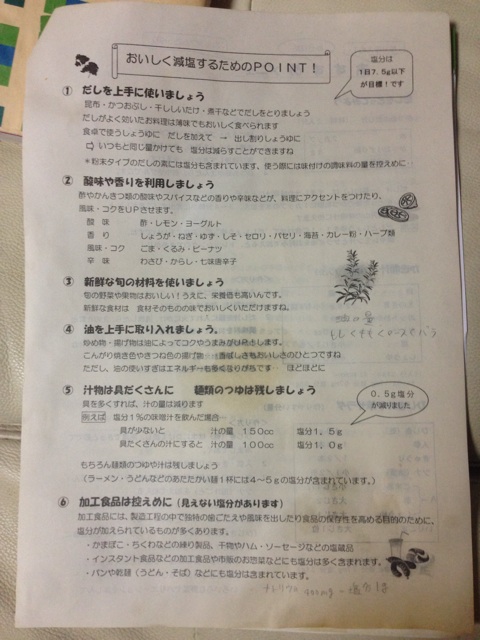 おいしく減塩するためのＰＯＩＮＴ！
塩分は
１日７．５ｇ以下
が目標！です
① だしを上手に使いましょう
昆布・かつおぶし・干ししいたけ・煮干などでだしをとりましょう
だしがよく効いたお料理は薄味でもおいしく食べられます
食卓で使うしょうゆに だしを加えて → 出し割りしょうゆに
⇨ いつもと同じ量かけても 塩分は減らすことができますね
＊粉末タイプのだしの素には塩分も含まれています、使う際には味付けの調味料の量を控えめに・・
② 酸味や香りを利用しましょう
酢やかんきつ類の酸味やスパイスなどの香りや辛味などが、料理にアクセントをつけたり、
風味・コクをＵＰさせます。
酸 味 酢・レモン・ヨーグルト
香 り しょうが・ねぎ・ゆず・しそ・セロリ・パセリ・海苔・カレー粉・ハーブ類
風味・コク ごま・くるみ・ピーナツ
辛 味 わさび・からし・七味唐辛子
③ 新鮮な旬の材料を使いましょう
旬の野菜や果物はおいしい！うえに、栄養価も高いんです。
新鮮な食材は 食材そのものの味でおいしくいただけますね。
④ 油を上手に取り入れましょう。
炒め物・揚げ物は油によってコクやうまみがＵＰします。
こんがり焼き色やきつね色の揚げ物 香ばしさもおいしさのひとつですね
ただし、油の使いすぎはエネルギーも多くなりがちです ほどほどに
油の量
⑤ 汁物は具だくさんに 麺類のつゆは残しましょう
具を多くすれば、汁の量は減ります
例えば 塩分１％の味噌汁を飲んだ場合…
具が少ないと 汁の量 １５０ｃｃ 塩分１．５ｇ
具たくさんの汁にすると 汁の量 １００ｃｃ 塩分１．０ｇ
０．５ｇ塩分
が減りました
もちろん麺類のつゆや汁は残しましょう
（ラーメン・うどんなどのあたたかい麺１杯には４～５ｇの塩分が含まれています。）
⑥ 加工食品は控えめに（見えない塩分があります）
加工食品には、製造工程の中で独特の歯ごたえや風味を出したり食品の保存性を高める目的のために、
塩分が加えられているものが多くあります。
・かまぼこ・ちくわなどの練り製品、干物やハム・ソーセージなどの塩蔵品
・インスタント食品などの加工食品や市販のお惣菜などにも塩分は多く含まれます。
・パンや乾麺（うどん・そば）などにも塩分は含まれています。
ナトリウム 400mg = 塩分1g